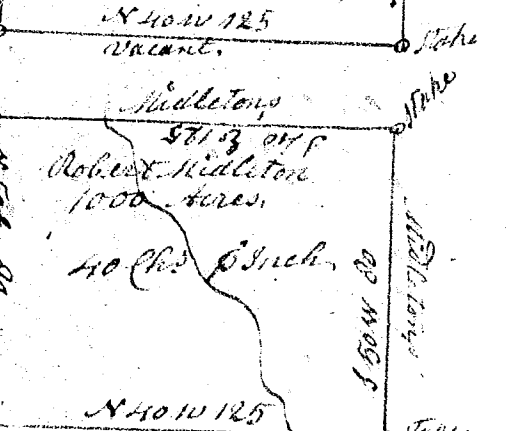 N 40 W 125
Vacant.
Stake
Stake
Midletons
S 40 E 125
Robert Midleton
1000 Acres.
40 Chs p Inch.
Midletons
S 50 W 80
N 40 W 125